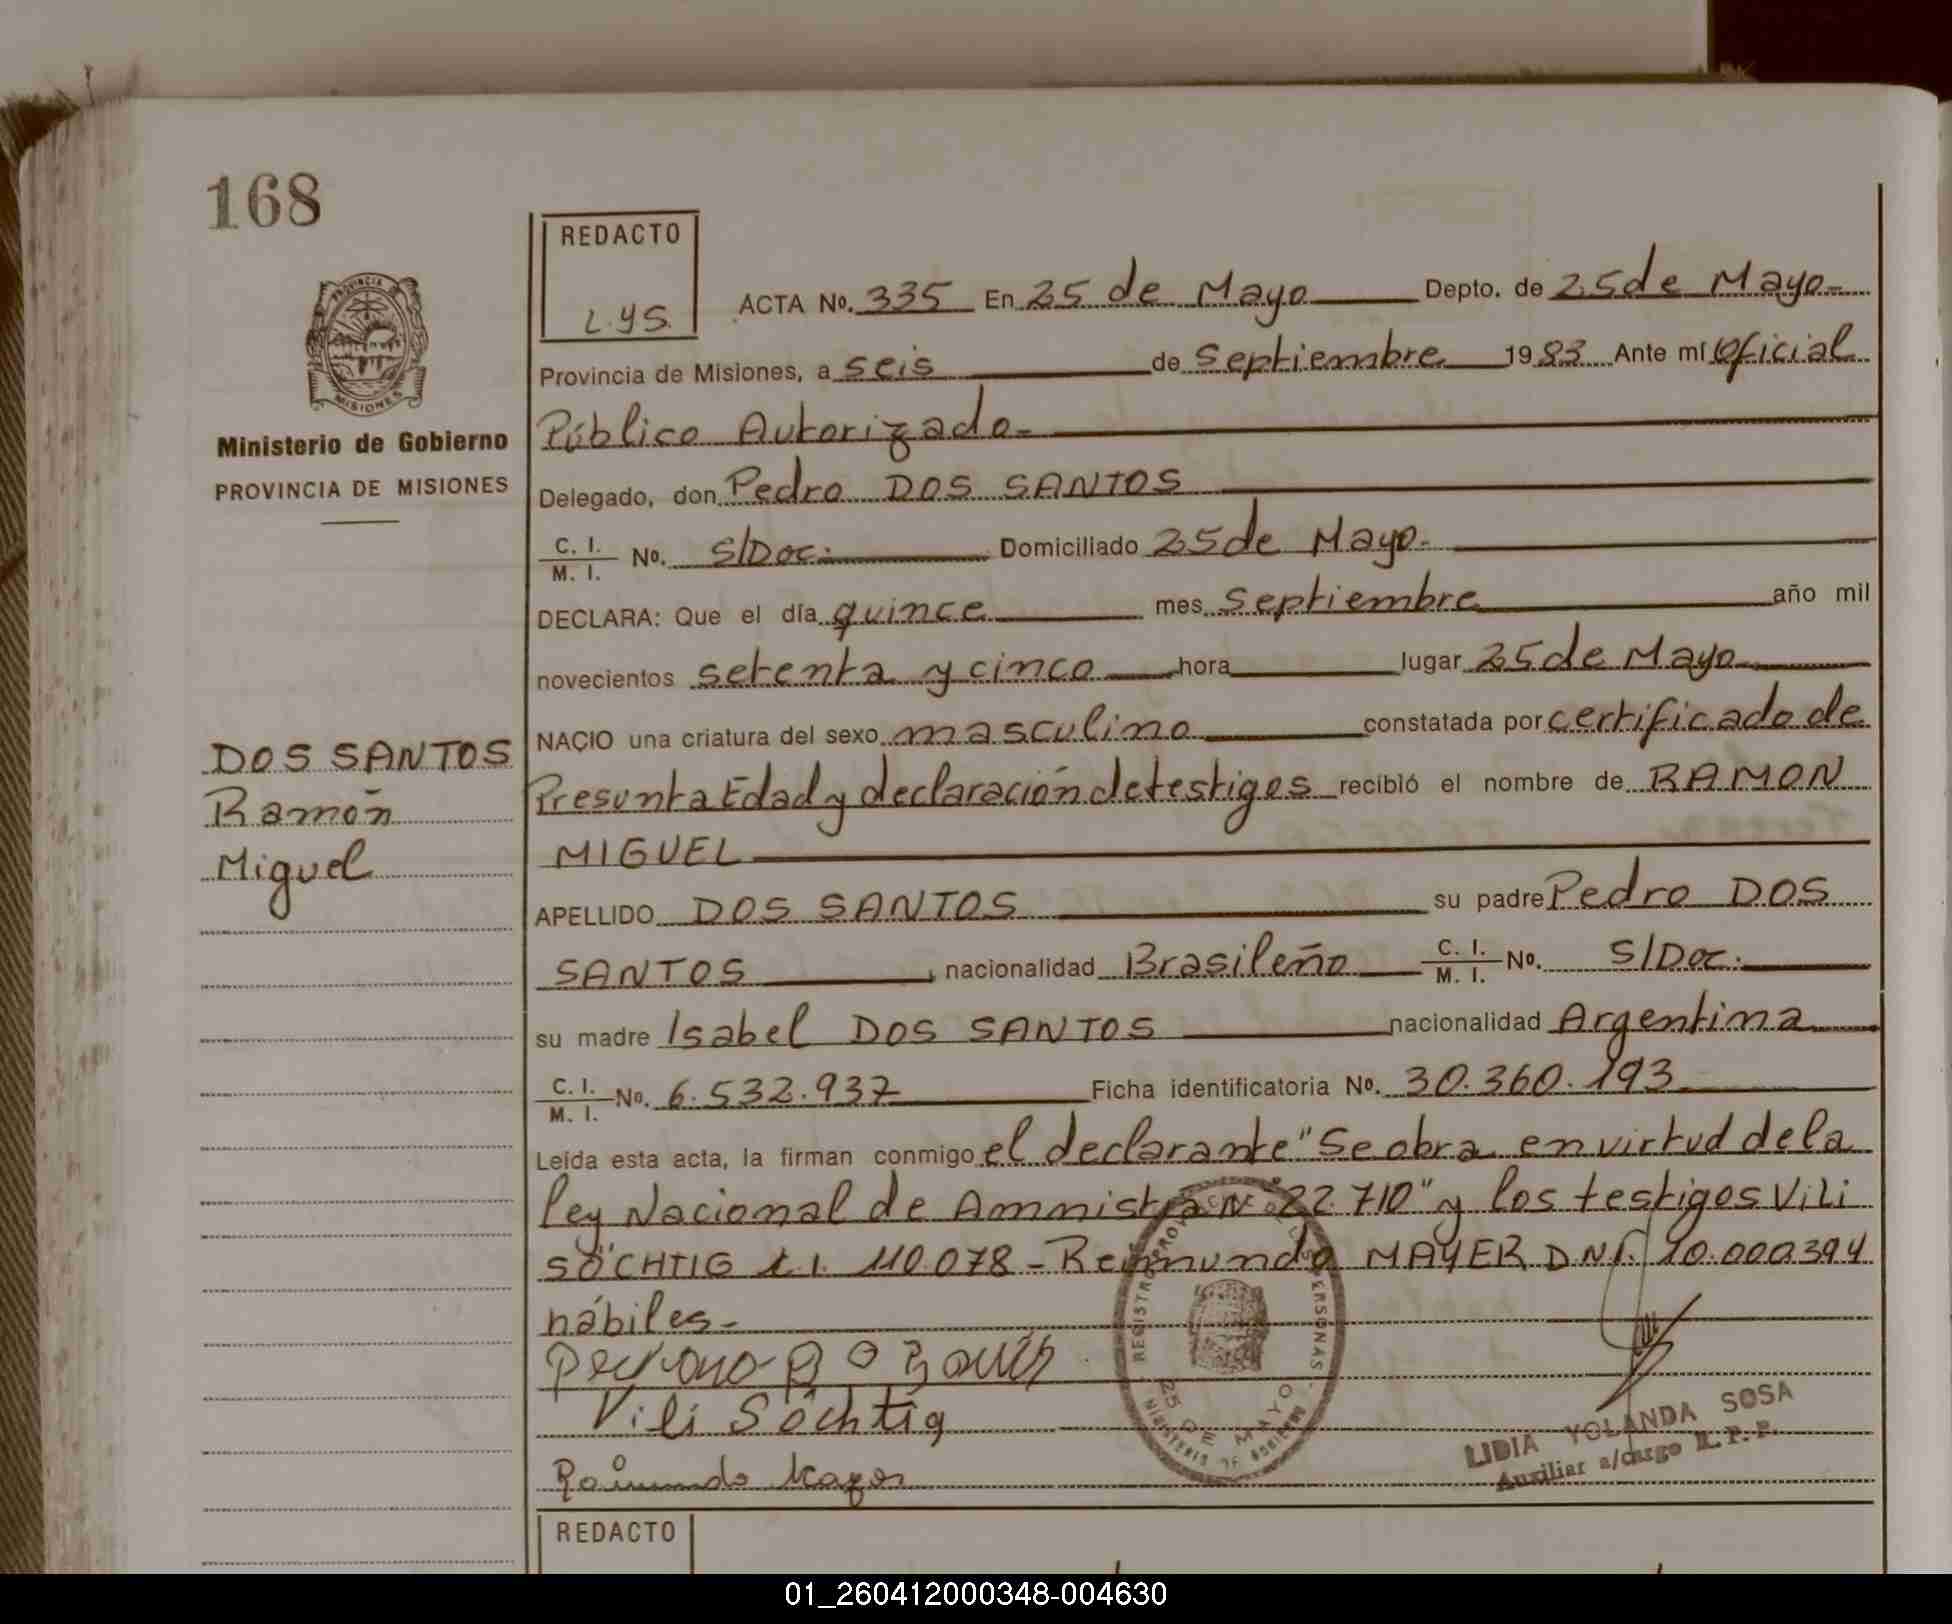 168
REDACTO
L.YS.
PROVINCIA
MISIONES
Ministerio de Gobierno
PROVINCIA DE MISIONES
ACTA No. 335 En 25 de Mayo Depto. de 25 de Mayo-
Provincia de Misiones, a seis de Septiembre 1983 Ante mí Oficial
Público Autorizado-
Delegado, don Pedro DOS SANTOS
C. I. M. I. No. S/Doc. Domiciliado 25 de Mayo-
DECLARA: Que el día quince mes Septiembre año mil
novecientos setenta y cinco hora lugar 25 de Mayo
NACIO una criatura del sexo masculino constatada por certificado de
Presunta Edad y declaración de testigos recibió el nombre de RAMON
MIGUEL
DOS SANTOS
Ramón
Miguel
APELLIDO DOS SANTOS su padre Pedro DOS
SANTOS, nacionalidad Brasileño C. I. M. I. No. S/Doc.
su madre Isabel DOS SANTOS nacionalidad Argentina
C. I. M. I. No. 6.532.937 Ficha identificatoria No. 30.360.193
Leída esta acta, la firman conmigo el declarante "Se obra en virtud de la
ley Nacional de Amnistía Nº 22.710" y los testigos Vili
SÖCHTIG 110.078 - Reimundo MAYER D.N.I. 10.000.394
hábiles-
Vili Söchtig
Raimundo
REGISTRO PROVINCIAL DE LAS PERSONAS
25 DE MAYO
MINISTERIO DE GOBIERNO
LIDIA YOLANDA SOSA
Auxiliar a/cargo R. P. P.
REDACTO
01_260412000348-004630